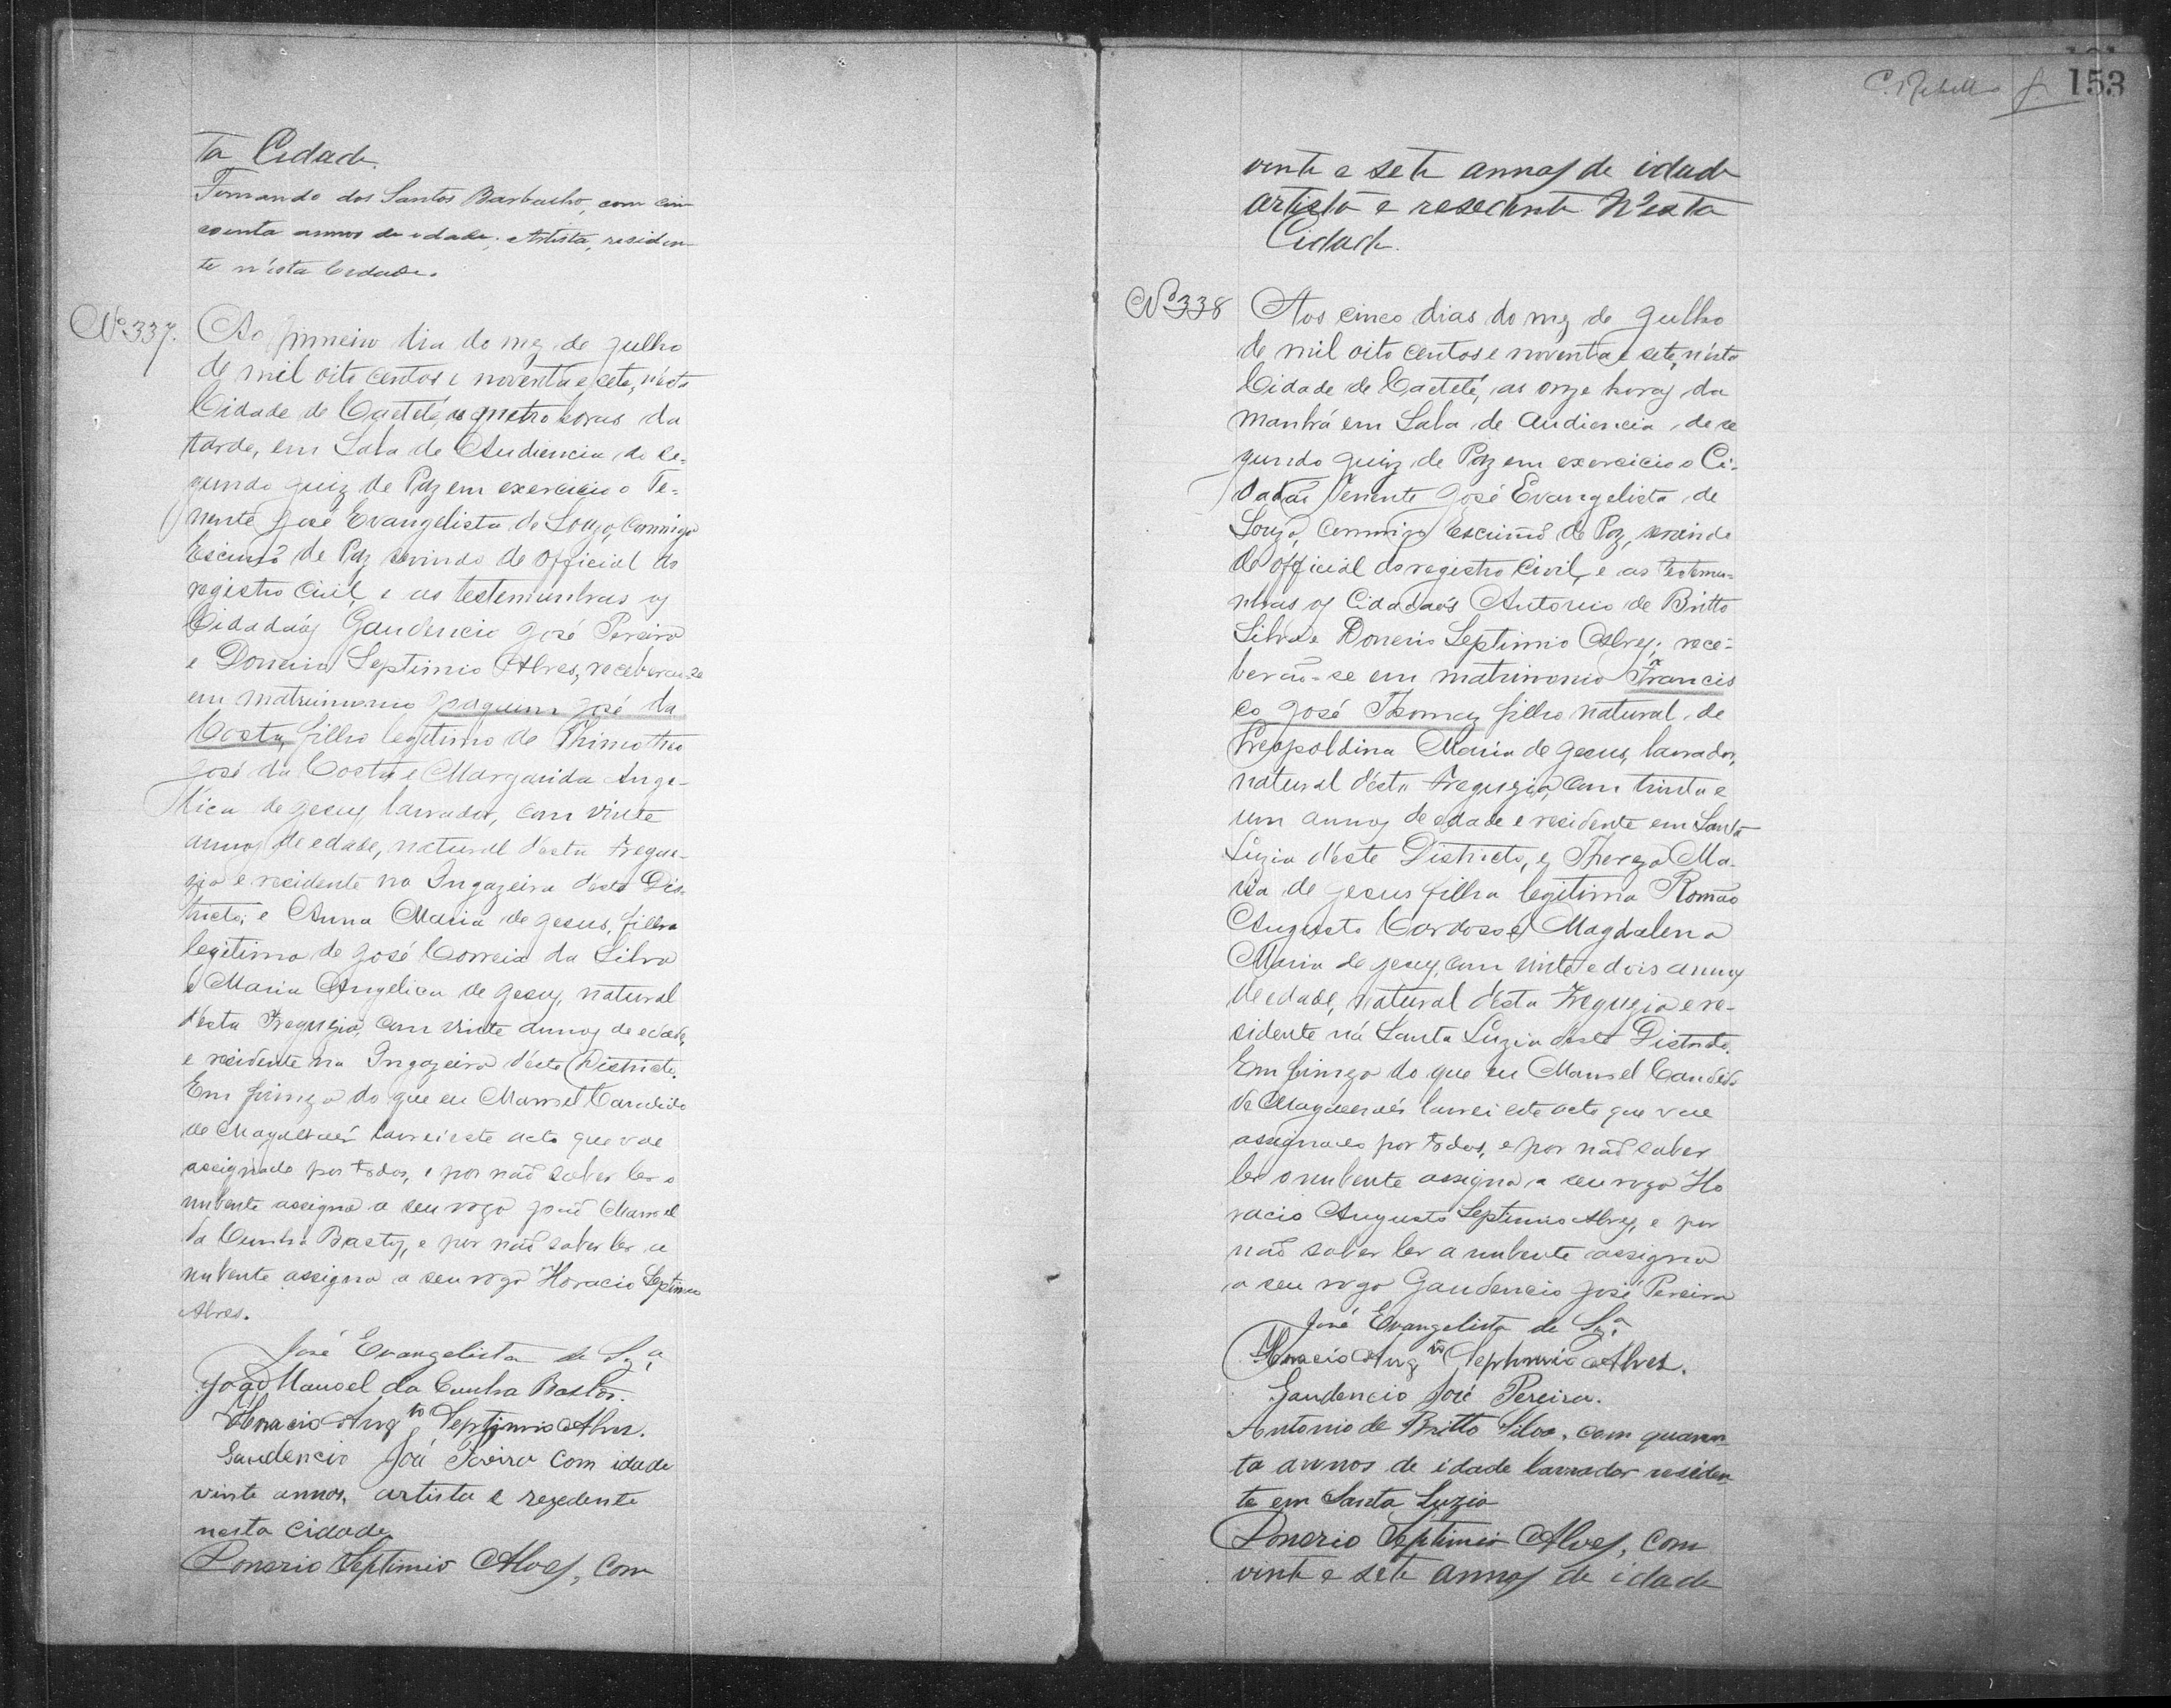 ta Cidade.
Fernando dos Santos Barbacho, com cin
coenta annos de edade, Artista, residen
te n'esta Cidade.
Nº 337.
Ao primeiro dia do mez de Julho
de mil oito centos e noventa e sete, n'esta
Cidade de Caeteté, as quatro horas da
tarde, em Sala de Audiencia do Se-
gundo Juiz de Paz em exercicio o Te-
nente José Evangelista de Souza, commigo
Escrivão de Paz servindo de official do
registro Civil, e as testemunhas os
Cidadãos Gaudencio José Pereira
e Donerio Septimio Alves, receberão-se
em matrimonio Joaquim José da
Costa, filho legitimo de Thimotheo
José da Costa e Margarida Ange-
lica de Jesus, lavrador, com vinte
annos de edade, natural d'esta Fregue-
zia e residente na Ingazeira d'este Dis-
tricto; e Anna Maria de Jesus, filha
legitima de José Correia da Silva
e Maria Angelica de Jesus, natural
d'esta Freguezia, com vinte annos de edade,
e residente na Ingazeira d'este Districto.
Em firmeza do que eu Manoel Candido
de Magalhães lavrei este acto que vae
assignado por todos, e por não saber ler o
nubente assigna a seu rogo João Manoel
da Cunha Bastos, e por não saber ler a
nubente assigna a seu rogo Horacio Septimio
Alves.
José Evangelista de Sza.
João Manoel da Cunha Bastos.
Horacio Augto Septimio Alves.
Gaudencio José Pereira com idade
vinte annos, artista e rezedente
nesta Cidade
Donerio Septimio Alves, com
153
vinte e sete annos de idade
artista e resedente N'esta
Cidade.
Nº 338
Aos cinco dias do mez de Julho
de mil oito centos e noventa e sete, n'esta
Cidade de Caeteté, as onze horas da
manhã em Sala de Audiencia, do se
gundo Juiz de Paz em exercicio o Ci-
dadão Tenente José Evangelista de
Souza, commigo Escrivão de Paz, servindo
de official do registro Civil, e as testemu-
nhas os Cidadaõs Antonio de Britto
Silva e Donerio Septimio Alves; rece-
berão-se em matrimonio Francis
co José Thomaz filho natural de
Leopoldina Maria de Jesus, lavrador,
natural d'esta Freguezia, com trinta e
um annos de edade e residente em Santa
Luzia d'este Districto, e Thereza Ma-
ria de Jesus filha legitima Romão
Augusto Cardoso e Magdalena
Maria de Jesus, com vinte e dois annos
de edade, natural d'esta Freguezia e re-
sidente na Santa Luzia deste Districto.
Em firmeza do que eu Manoel Candido
de Magalhães lavrei este acto que vae
assignado por todos, e por não saber
ler o nubente assigna a seu rogo Ho
racio Augusto Septimio Alves, e por
não saber ler a nubente assigna
a seu rogo Gaudencio José Pereira
José Evangelista de Sza.
Horacio Augto Septimio Alves.
Gaudencio José Pereira.
Antonio de Britto Silva, com quaren-
ta annos de idade lavrador residen
te em Santa Luzia
Donerio Septimio Alves, com
vinte e sete annos de idade